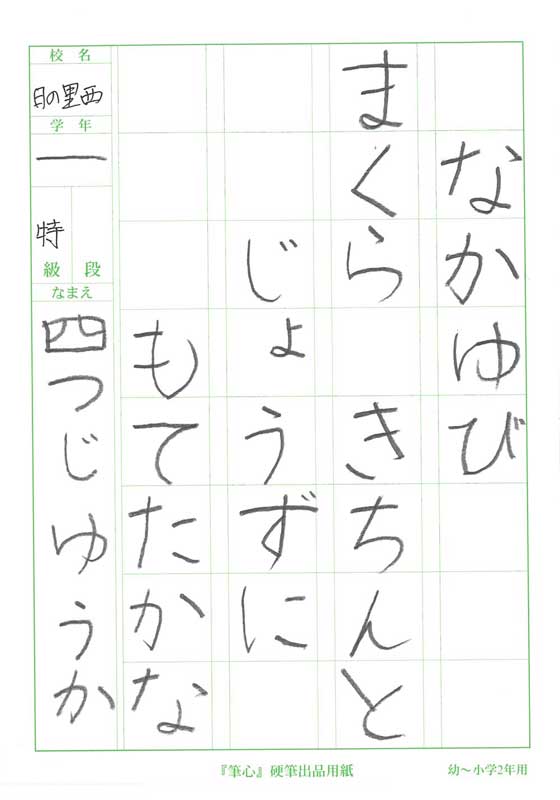 なかゆび
まくら きちんと
じょうずに
もてたかな
校名
日の里西
学年
一
特
級 段
なまえ
四つじゅうか
『筆心』硬筆出品用紙
幼〜小学2年用